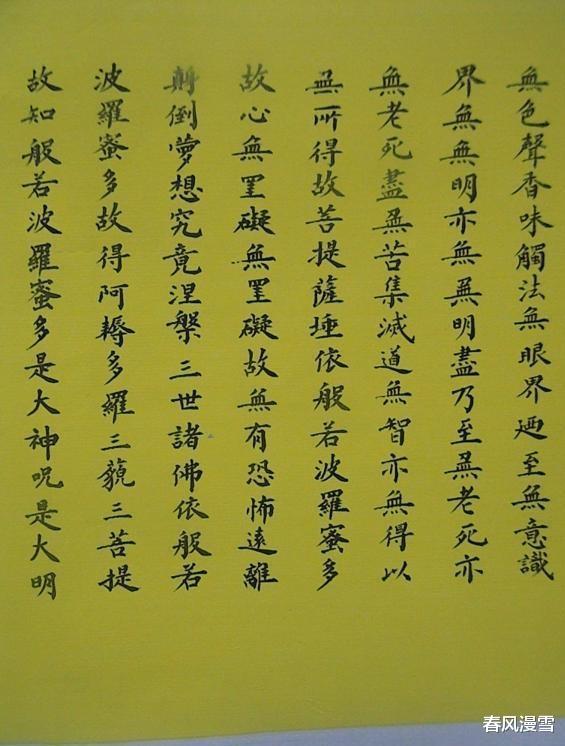 無色聲香味觸法無眼界廼至無意識
界無無明亦無無明盡乃至無老死亦
無老死盡無苦集滅道無智亦無得以
無所得故菩提薩埵依般若波羅蜜多
故心無罣礙無罣礙故無有恐怖遠離
倒夢想究竟涅槃三世諸佛依般若
波羅蜜多故得阿耨多羅三藐三菩提
故知般若波羅蜜多是大神呪是大明
春风漫雪